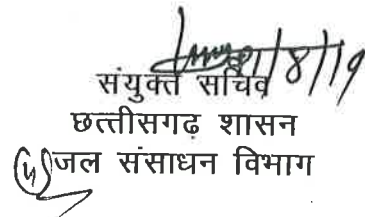 /8/19
संयुक्त सचिव
छत्तीसगढ़ शासन
जल संसाधन विभाग